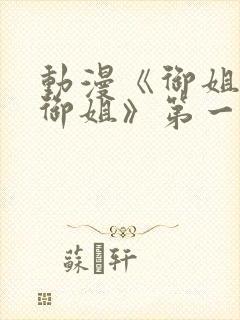 動漫《御姐
御姐》第一
蘇轩